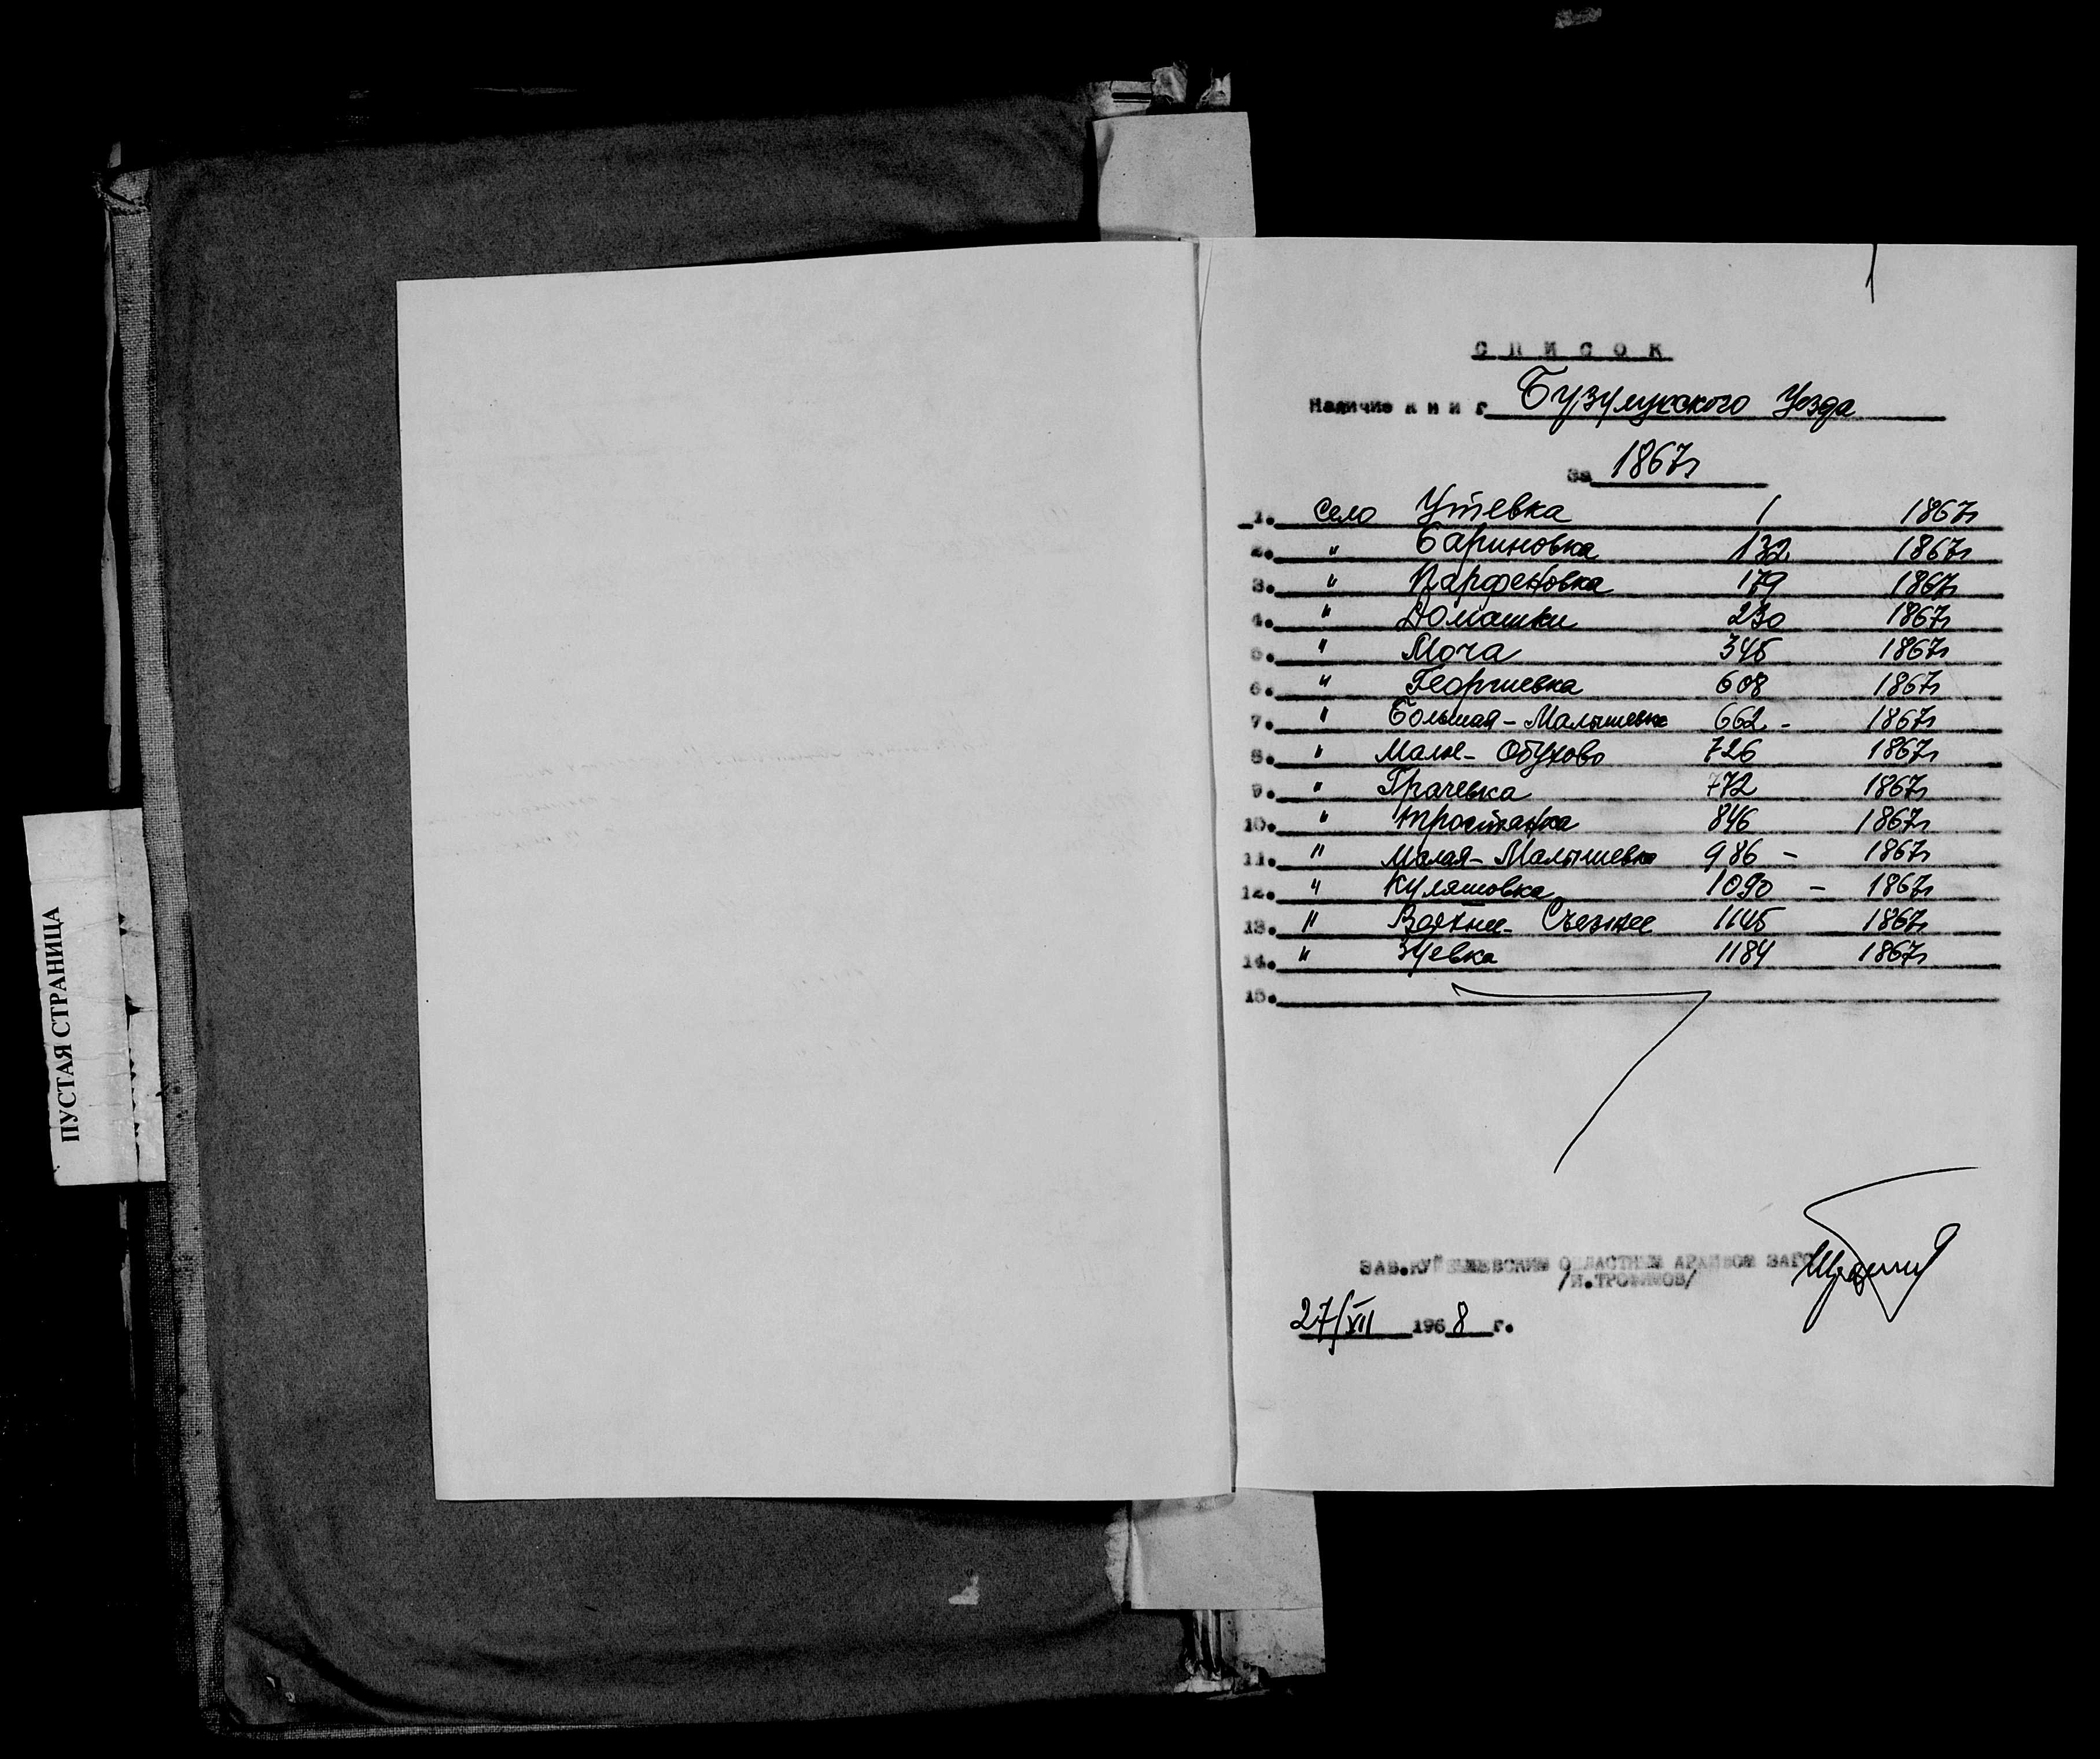 ПУСТАЯ СТРАНИЦА
СПИСОК
Наличие книг Бузулукского Уезда
за 1867г
1. Село Утевка 1 1867г
2. " Бариновка 132 1867г
3. " Парфеновка 179 1867г
4. " Домашки 230 1867г
5. " Моча 345 1867г
6. " Георгиевка 608 1867г
7. " Большая-Малышевка 662 - 1867г
8. " Малое- Обухово 726 1867г
9. " Грачевка 772 1867г
10. " Тростянка 846 1867г
11. " Малая-Малышевка 986 - 1867г
12. " Куляшовка 1090 - 1867г
13. " Верхне- Съезжее 1145 1867г
14. " Зуевка 1184 1867г
15.
ЗАВ.КУЙБЫШЕВСКИМ ОБЛАСТНЫМ АРХИВОМ ЗАГС
/Н.ТРОФИМОВ/
27/XII 1968 г.